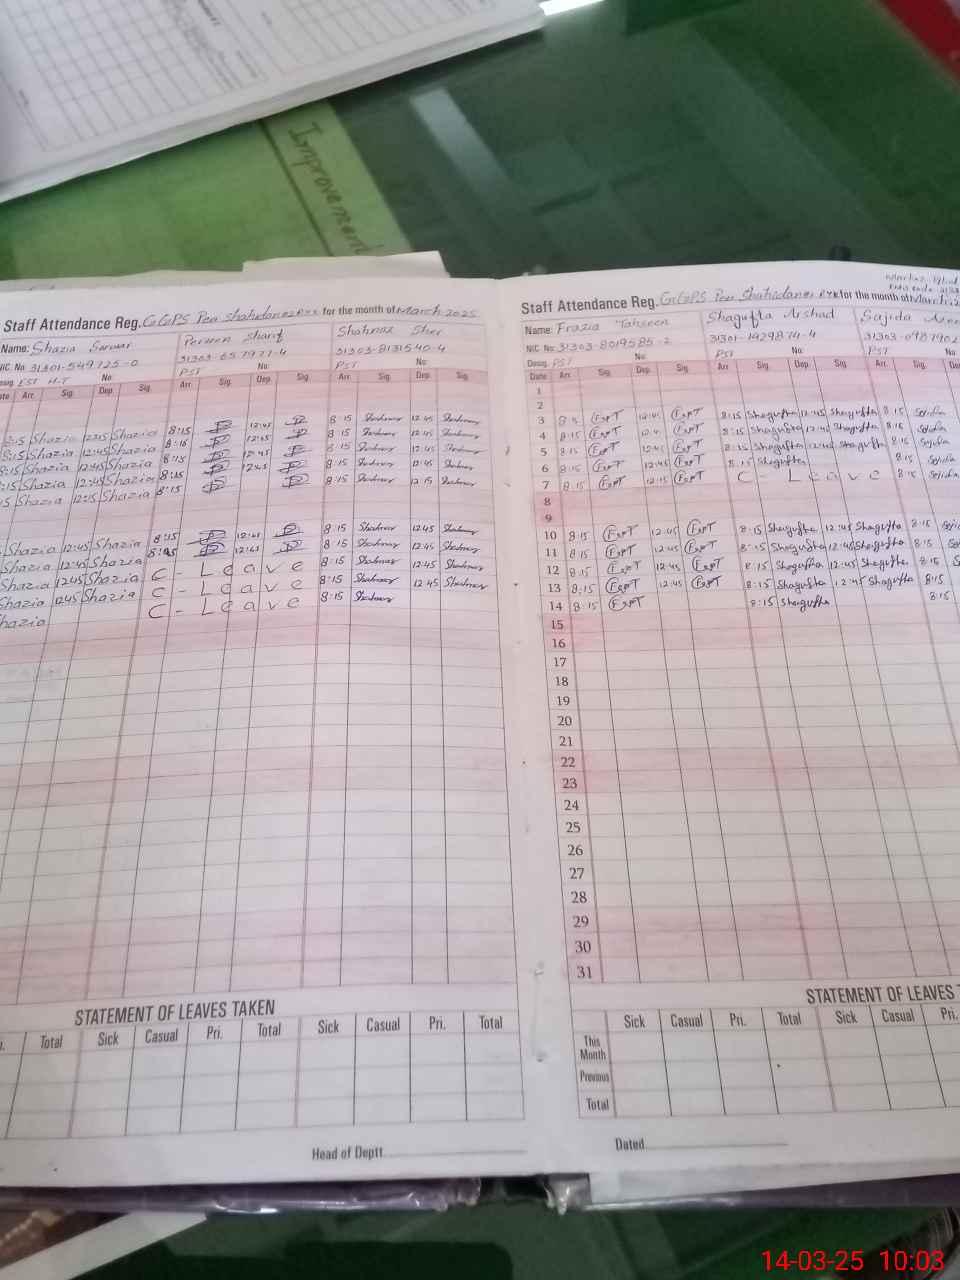 Improvement
Staff Attendance Reg. GGPS Peer Shahadan RYK for the month of March 2025
Name: Shazia Sarwar Perveen Sharif Shahnaz Sher
NIC. No. 31301-549725-0 31303-657977-4 31303-8131540-4
Desig. EST H.T No: PST No: PST No:
Date Arr. Sig. Dep. Sig. Arr. Sig. Dep. Sig. Arr. Sig. Dep. Sig.
8:15 Shazia 12:15 Shazia 8:15 12:45 8:15 Shahnaz 12:45 Shahnaz
8:15 Shazia 12:45 Shazia 8:15 12:45 8:15 Shahnaz 12:45 Shahnaz
8:15 Shazia 12:45 Shazia 8:15 12:45 8:15 Shahnaz 12:45 Shahnaz
8:15 Shazia 12:45 Shazia 8:15 12:45 8:15 Shahnaz 12:45 Shahnaz
Shazia 12:15 Shazia 8:15 8:15 Shahnaz 12 15 Shahnaz
Shazia 12:45 Shazia 8:15 12:45 8:15 Shahnaz 12:45 Shahnaz
Shazia 12:45 Shazia 8:15 12:45 8:15 Shahnaz 12:45 Shahnaz
Shazia 12:45 Shazia C - Leave 8:15 Shahnaz 12:45 Shahnaz
Shazia 12:45 Shazia C - Leave 8:15 Shahnaz 12 45 Shahnaz
Shazia C - Leave 8:15 Shahnaz
STATEMENT OF LEAVES TAKEN
Total Sick Casual Pri. Total Sick Casual Pri. Total
Head of Deptt.
Staff Attendance Reg. GGPS Peer Shahadan RYK for the month of March
Name: Frazia Tahseen Shagufta Arshad Sajida
NIC. No. 31303-8019585-2 31301-1429874-4 31303-0987902
Desig. PST No: PST No: PST No:
Date Arr. Sig. Dep. Sig. Arr. Sig. Dep. Sig. Arr. Sig.
1
2
3 12:45 8:15 Shagufta 12:45 Shagufta 8:15 Sajida
4 8:15 8:15 Shagufta 12:45 Shagufta 8:15 Sajida
5 8:15 12:45 8:15 Shagufta 12:45 Shagufta 8:15 Sajida
6 8:15 12:45 8:15 Shagufta 8:15 Sajida
7 8:15 12:15 C - Leave 8:15 Sajida
8
9
10 8:15 12:45 8:15 Shagufta 12:45 Shagufta 8:15
11 8:15 12:45 8:15 Shagufta 12:45 Shagufta 8:15
12 8:15 12:45 8:15 Shagufta 12:45 Shagufta 8:15
13 8:15 12:45 8:15 Shagufta 12:45 Shagufta 8:15
14 8:15 8:15 Shagufta 8:15
15
16
17
18
19
20
21
22
23
24
25
26
27
28
29
30
31
STATEMENT OF LEAVES T
Sick Casual Pri. Total Sick Casual Pri.
This Month
Previous
Total
Dated
14-03-25 10:03